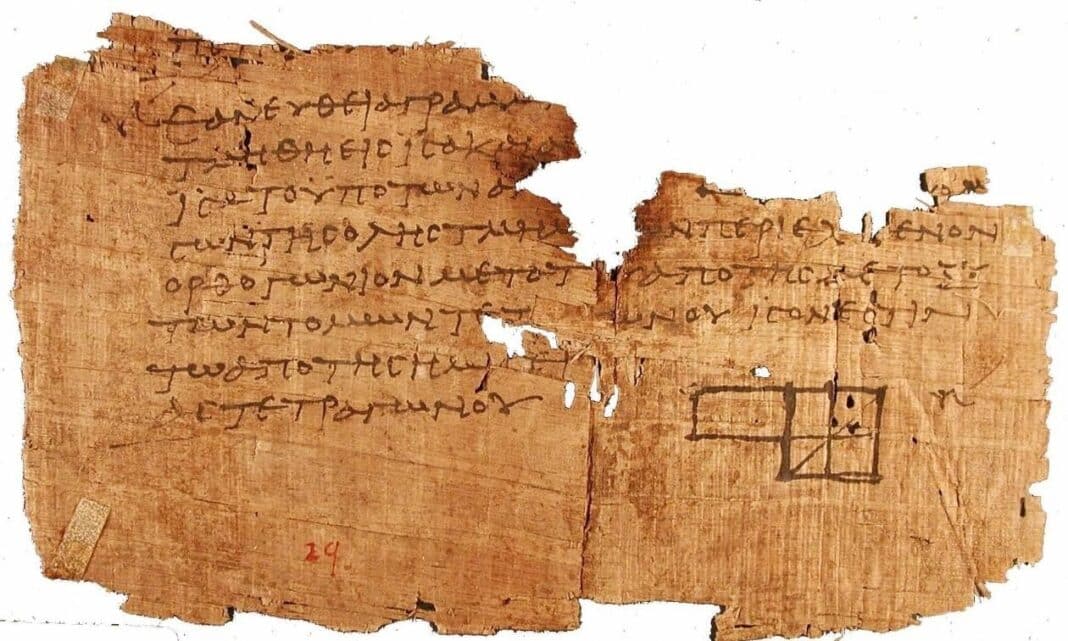 ΕΑΝ ΕΥΘΕΙΑ ΓΡΑΜ
ΤΜΗΘΗ ΕΙϹ ΙϹΑ Κ
ΙϹΑ ΤΟ ΥΠΟ ΤΩΝ Α
ϹΩΝ ΤΗϹ ΟΛΗϹ ΤΜΗΜ ΩΝ ΠΕΡΙΕΧ ΜΕΝΟΝ
ΟΡΘΟΓΩΝΙΟΝ ΜΕΤΑ Τ ΑΠΟ ΤΗϹ ΜΕΤΟΞΥ
ΤΩΝ ΤΟΜΩΝ ΤΕΤ ΩΝΟΥ ΙϹΟΝ ΕϹΤΙΝ
ΤΩ ΑΠΟ ΤΗϹ ΗΜΙ
ΤΕΤΡΑΓΩΝΟΥ
29